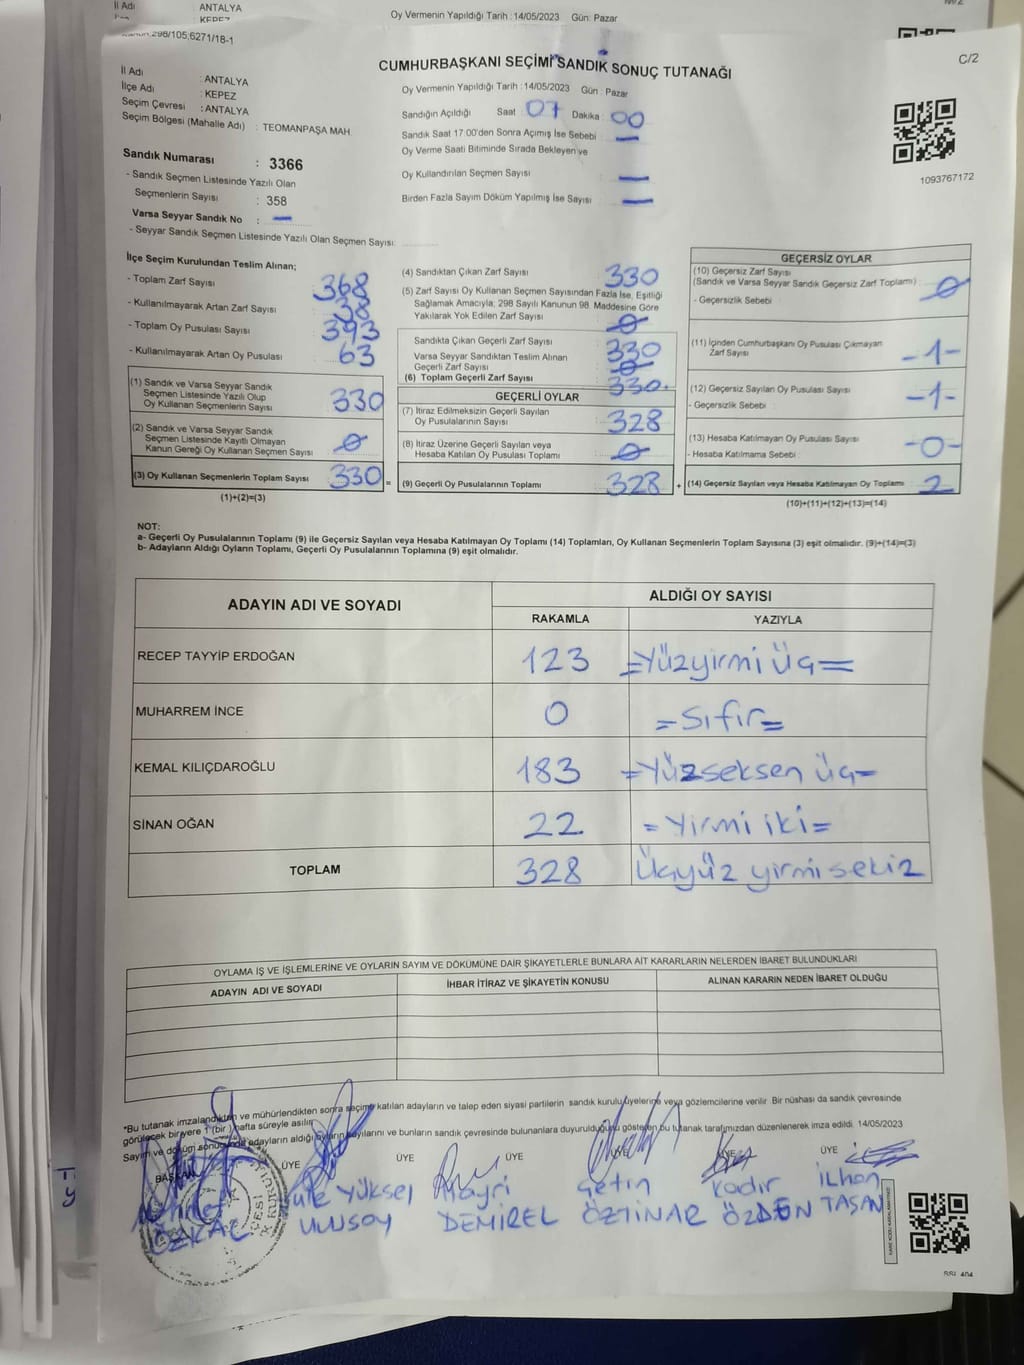 İl Adı : ANTALYA
KEPEZ
Oy Vermenin Yapıldığı Tarih :14/05/2023 Gün: Pazar
298/105;6271/18-1
C/2
CUMHURBAŞKANI SEÇİMİ SANDIK SONUÇ TUTANAĞI
İl Adı : ANTALYA
İlçe Adı : KEPEZ
Seçim Çevresi : ANTALYA
Seçim Bölgesi (Mahalle Adı) : TEOMANPAŞA MAH.
Oy Vermenin Yapıldığı Tarih :14/05/2023 Gün : Pazar
Sandığın Açıldığı Saat 07 Dakika : 00
Sandık Saat 17.00'den Sonra Açımış İse Sebebi : —
Oy Verme Saati Bitiminde Sırada Bekleyen ve
Oy Kullandırılan Seçmen Sayısı —
Birden Fazla Sayım Döküm Yapılmış İse Sayısı —
1093767172
Sandık Numarası : 3366
- Sandık Seçmen Listesinde Yazılı Olan
Seçmenlerin Sayısı : 358
Varsa Seyyar Sandık No : —
- Seyyar Sandık Seçmen Listesinde Yazılı Olan Seçmen Sayısı:
İlçe Seçim Kurulundan Teslim Alınan;
- Toplam Zarf Sayısı 368
- Kullanılmayarak Artan Zarf Sayısı 38
- Toplam Oy Pusulası Sayısı 393
- Kullanılmayarak Artan Oy Pusulası 63
(1) Sandık ve Varsa Seyyar Sandık
Seçmen Listesinde Yazılı Olup
Oy Kullanan Seçmenlerin Sayısı 330
(2) Sandık ve Varsa Seyyar Sandık
Seçmen Listesinde Kayıtlı Olmayan
Kanun Gereği Oy Kullanan Seçmen Sayısı 0
(3) Oy Kullanan Seçmenlerin Toplam Sayısı 330 =
(1)+(2)=(3)
(4) Sandıktan Çıkan Zarf Sayısı 330
(5) Zarf Sayısı Oy Kullanan Seçmen Sayısından Fazla İse, Eşitliği
Sağlamak Amacıyla, 298 Sayılı Kanunun 98. Maddesine Göre
Yakılarak Yok Edilen Zarf Sayısı 0
Sandıkta Çıkan Geçerli Zarf Sayısı 330
Varsa Seyyar Sandıktan Teslim Alınan
Geçerli Zarf Sayısı 0
(6) Toplam Geçerli Zarf Sayısı 330
GEÇERLİ OYLAR
(7) İtiraz Edilmeksizin Geçerli Sayılan
Oy Pusulalarının Sayısı 328
(8) İtiraz Üzerine Geçerli Sayılan veya
Hesaba Katılan Oy Pusulası Toplamı 0
(9) Geçerli Oy Pusulalarının Toplamı 328 +
GEÇERSİZ OYLAR
(10) Geçersiz Zarf Sayısı
(Sandık ve Varsa Seyyar Sandık Geçersiz Zarf Toplamı) 0
- Geçersizlik Sebebi :
(11) İçinden Cumhurbaşkanı Oy Pusulası Çıkmayan
Zarf Sayısı -1-
(12) Geçersiz Sayılan Oy Pusulası Sayısı -1-
- Geçersizlik Sebebi :
(13) Hesaba Katılmayan Oy Pusulası Sayısı -0-
- Hesaba Katılmama Sebebi :
(14) Geçersiz Sayılan veya Hesaba Katılmayan Oy Toplamı 2
(10)+(11)+(12)+(13)=(14)
NOT:
a- Geçerli Oy Pusulalarının Toplamı (9) ile Geçersiz Sayılan veya Hesaba Katılmayan Oy Toplamı (14) Toplamları, Oy Kullanan Seçmenlerin Toplam Sayısına (3) eşit olmalıdır. (9)+(14)=(3)
b- Adayların Aldığı Oyların Toplamı, Geçerli Oy Pusulalarının Toplamına (9) eşit olmalıdır.
ADAYIN ADI VE SOYADI ALDIĞI OY SAYISI
RAKAMLA YAZIYLA
RECEP TAYYİP ERDOĞAN 123 =Yüzyirmi üç=
MUHARREM İNCE 0 =Sıfır=
KEMAL KILIÇDAROĞLU 183 =Yüzseksen üç=
SİNAN OĞAN 22 =Yirmi iki=
TOPLAM 328 Üçyüz yirmi sekiz
OYLAMA İŞ VE İŞLEMLERİNE VE OYLARIN SAYIM VE DÖKÜMÜNE DAİR ŞİKAYETLERLE BUNLARA AİT KARARLARIN NELERDEN İBARET BULUNDUKLARI
ADAYIN ADI VE SOYADI İHBAR İTİRAZ VE ŞİKAYETİN KONUSU ALINAN KARARIN NEDEN İBARET OLDUĞU
*Bu tutanak imzalandıktan ve mühürlendikten sonra seçime katılan adayların ve talep eden siyasi partilerin sandık kurulu üyelerine veya gözlemcilerine verilir. Bir nüshası da sandık çevresinde
görülecek bir yere 1 (bir) hafta süreyle asılır.
Sayım ve döküm sonucunda adayların aldığı oyların sayılarını ve bunların sandık çevresinde bulunanlara duyurulduğunu gösteren bu tutanak tarafımızdan düzenlenerek imza edildi. 14/05/2023
BAŞKAN ÜYE ÜYE ÜYE ÜYE ÜYE ÜYE
YÜKSEL Hayri Çetin Kadir İlhan
ÖZKAL ULUSOY DEMİREL ÖZTİNAR ÖZDEN TAŞAN